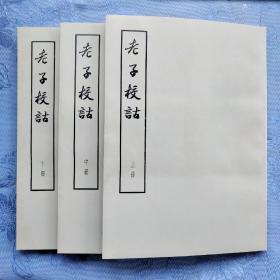 老子校詁
下册
老子校詁
中册
老子校詁
上册